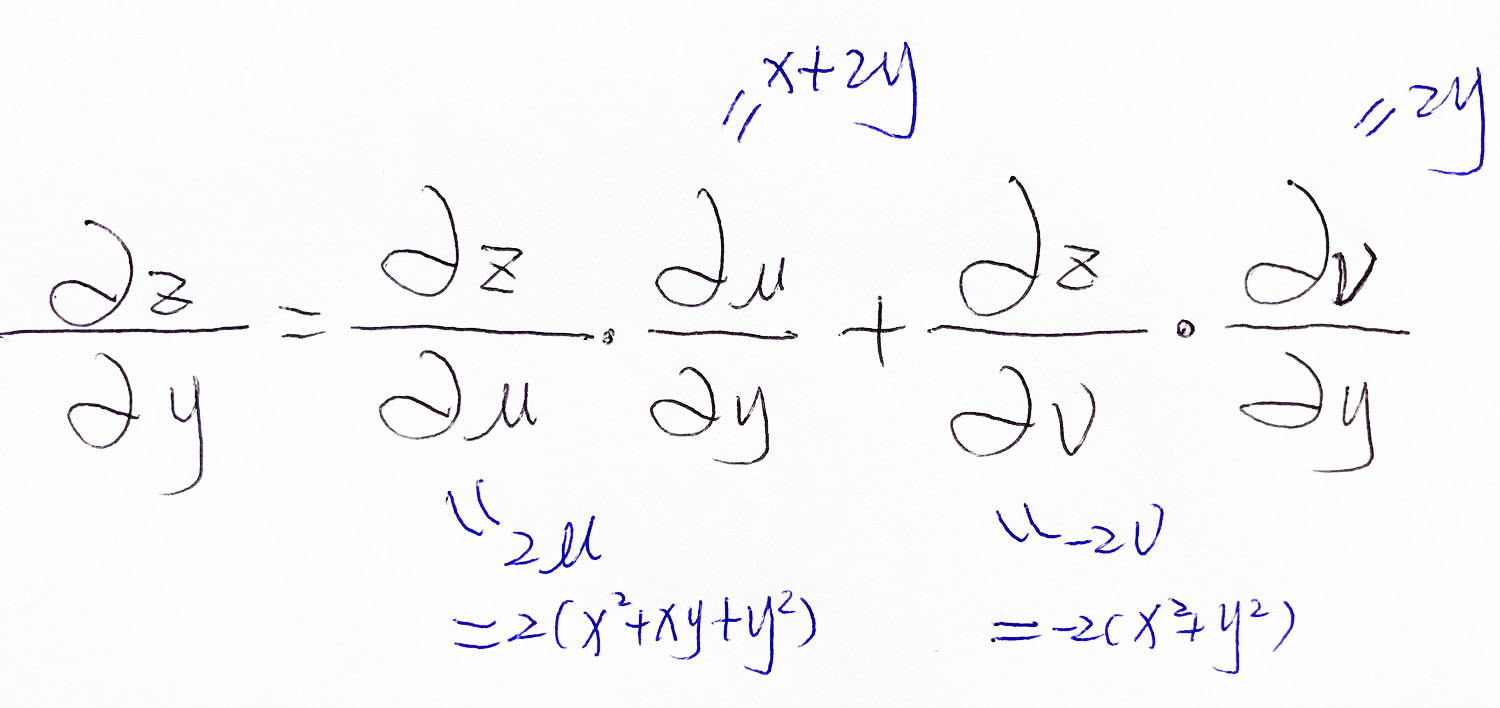 "x+2y "2y
∂z/∂y = ∂z/∂u · ∂u/∂y + ∂z/∂v · ∂v/∂y
"2u "-2v
=2(x²+xy+y²) =-2(x²+y²)